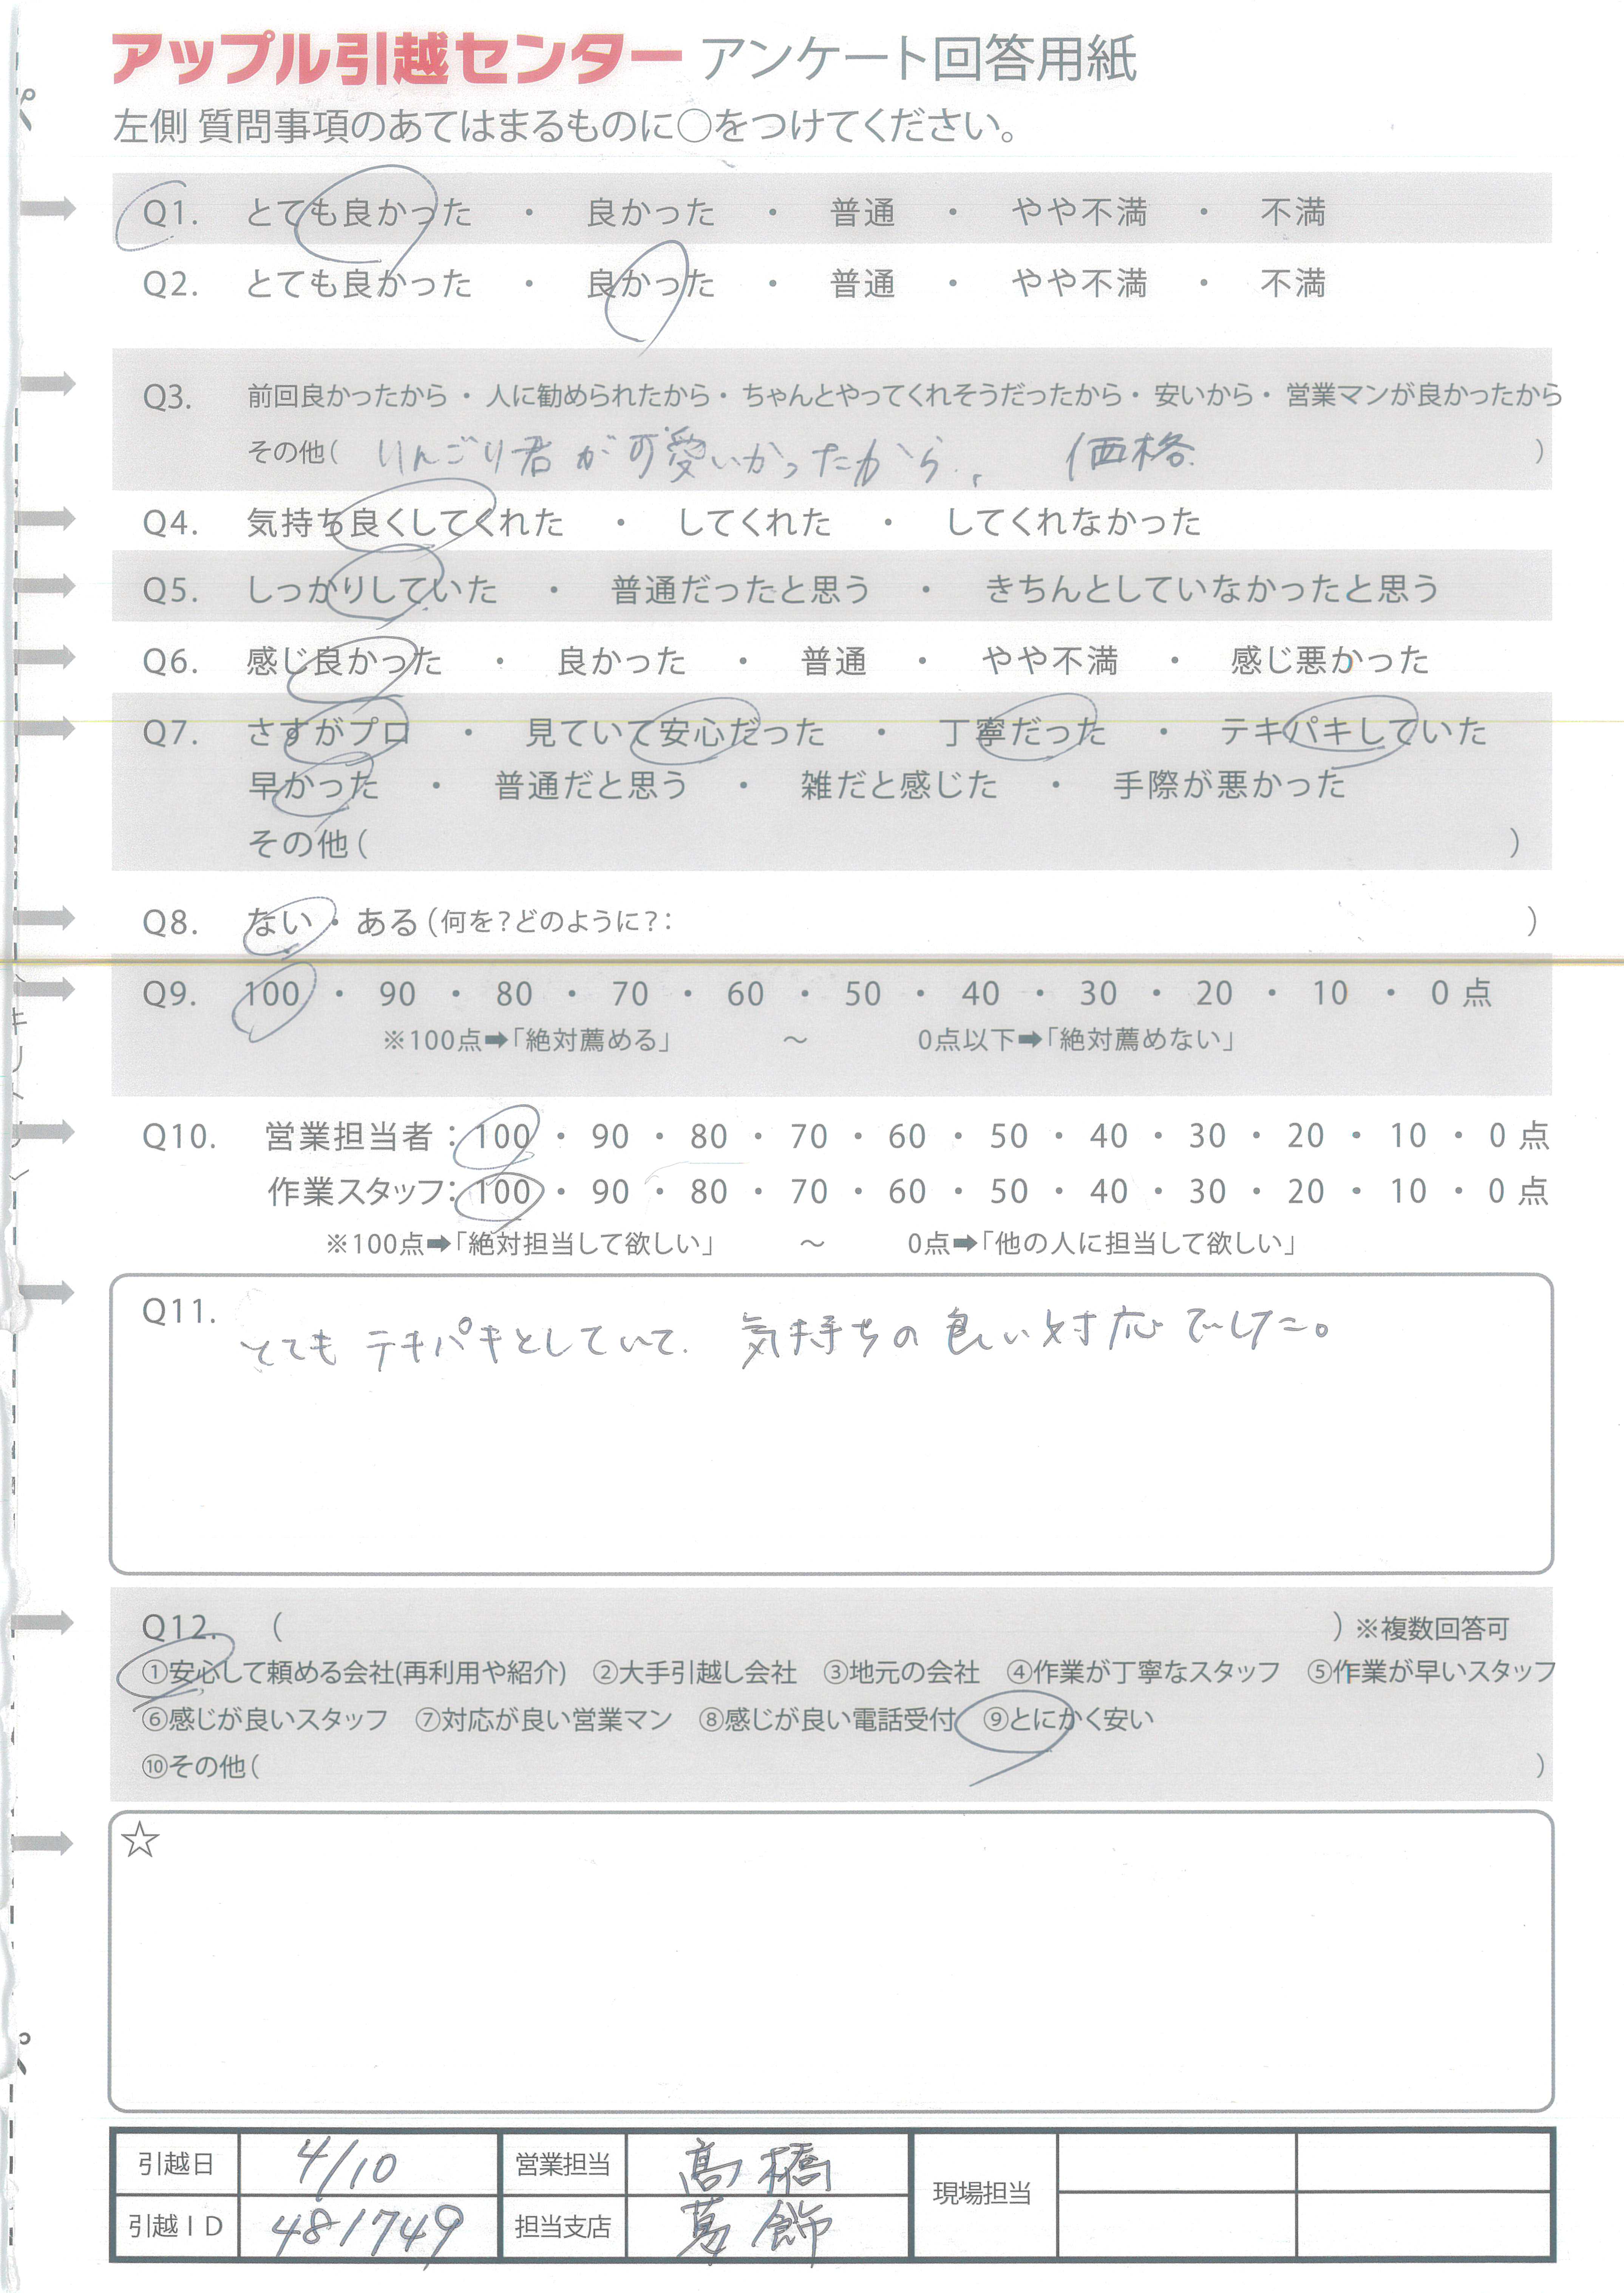 アップル引越センター アンケート回答用紙
左側 質問事項のあてはまるものに○をつけてください。
Q1. とても良かった ・ 良かった ・ 普通 ・ やや不満 ・ 不満
Q2. とても良かった ・ 良かった ・ 普通 ・ やや不満 ・ 不満
Q3. 前回良かったから ・ 人に勧められたから ・ ちゃんとやってくれそうだったから ・ 安いから ・ 営業マンが良かったから
その他( りんごり君が可愛いかったから、 価格 )
Q4. 気持ち良くしてくれた ・ してくれた ・ してくれなかった
Q5. しっかりしていた ・ 普通だったと思う ・ きちんとしていなかったと思う
Q6. 感じ良かった ・ 良かった ・ 普通 ・ やや不満 ・ 感じ悪かった
Q7. さすがプロ ・ 見ていて安心だった ・ 丁寧だった ・ テキパキしていた
早かった ・ 普通だと思う ・ 雑だと感じた ・ 手際が悪かった
その他( )
Q8. ない ・ ある (何を?どのように?: )
Q9. 100 ・ 90 ・ 80 ・ 70 ・ 60 ・ 50 ・ 40 ・ 30 ・ 20 ・ 10 ・ 0 点
※100点➡「絶対薦める」 ～ 0点以下➡「絶対薦めない」
Q10. 営業担当者 : 100 ・ 90 ・ 80 ・ 70 ・ 60 ・ 50 ・ 40 ・ 30 ・ 20 ・ 10 ・ 0 点
作業スタッフ: 100 ・ 90 ・ 80 ・ 70 ・ 60 ・ 50 ・ 40 ・ 30 ・ 20 ・ 10 ・ 0 点
※100点➡「絶対担当して欲しい」 ～ 0点➡「他の人に担当して欲しい」
Q11. とても テキパキとしていて、気持ちの良い対応でした。
Q12. ( ) ※複数回答可
①安心して頼める会社(再利用や紹介) ②大手引越し会社 ③地元の会社 ④作業が丁寧なスタッフ ⑤作業が早いスタッフ
⑥感じが良いスタッフ ⑦対応が良い営業マン ⑧感じが良い電話受付 ⑨とにかく安い
⑩その他( )
☆
引越日 4/10 営業担当 高橋 現場担当
引越ID 481749 担当支店 葛飾